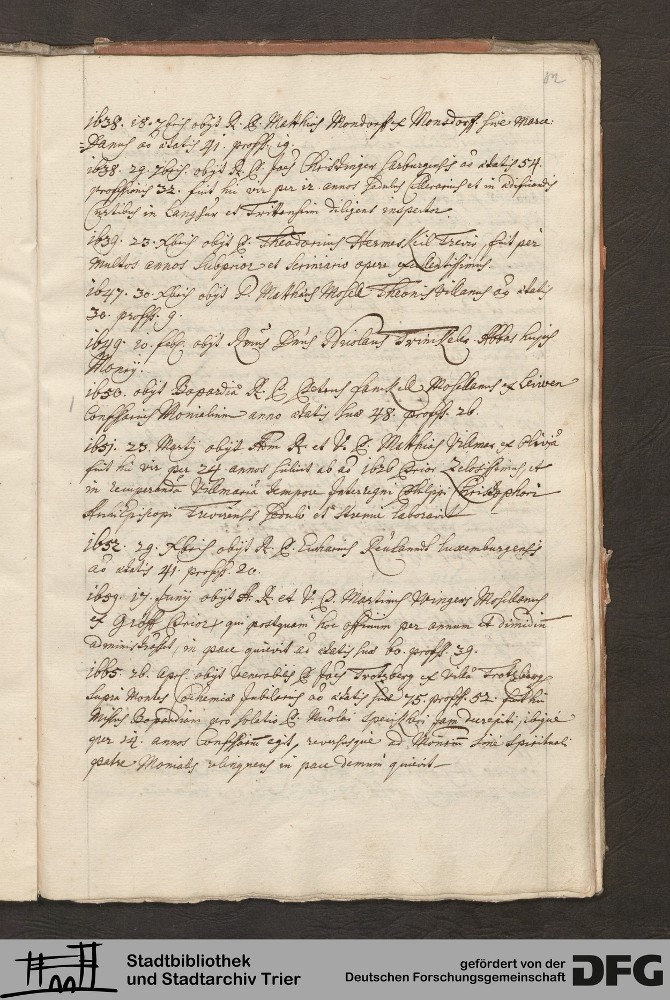 1638. 18. 7bris obijt R. P. Matthias Mondorff ex Monsdorff sive Marce
danus ao ætatis 41. profess. 19.
1638. 29. 7bris obijt R. P. Joës Christinger Sarburgensis ao ætatis 54.
professionis 32. fuit hic vir per 12. annos sedulus Cellerarius et in ædificandis
curtibus in Langsur et Trittenheim diligens inspector.
1639. 23. Xbris obijt P. Theodorius Hermeskeil Trevir, fuit per
multos annos Subprior et Scriniario opere excellentissimus.
1647. 30. Xbris obijt P. Matthæus Mosell Theonisvillanus ao ætatis
30. profess. 9.
1649. 20. feb. obijt Rmus Dnus Nicolaus Trinkeler Abbas hujus
Monrij.
1650. obijt Bopardiæ R. P. Petrus Sanckell Mosellanus ex Leiwen
Confessarius Monialium anno ætatis suæ 48. profess. 26.
1651. 23. Martij obijt Adm R. et V. P. Matthias Villmar ex Olivia
fuit hic vir per 24 annos scilicet ab ao 1626 Prior Zelosissimus et
in recuperanda Villmaria tempore Interregni Philippi Christophori
Archi Episcopi Trevirensis sedulo et strenue laboravit
1652. 29. Xbris obijt R. P. Eucharius Reulandt Luxemburgensis
ao ætatis 41. profess. 20.
1659. 17. Junij obijt A. R. et V. P. Martinus Wingers Mosellanus
ex Graff Prior, qui postquam hoc officium per annum et dimidium
administrasset, in pace quievit ao ætatis suæ 60. profess. 39.
1665. 26. Apr. obijt Venerabilis P. Joës Trotzberg ex Villa Trotzberg
supra Montes Cochemiæ Jubilarius ao ætatis suæ 75. profess. 52. fuit hic
Missus Bopardiam pro solatio P. Nicolai Speissberi jam decrepiti, ibique
per 14. annos Confessarium egit, reversusque ad Monrium sine Spirituali
patre Moniales relinquens in pace demum quievit
Stadtbibliothek
und Stadtarchiv Trier
gefördert von der
Deutschen Forschungsgemeinschaft
DFG